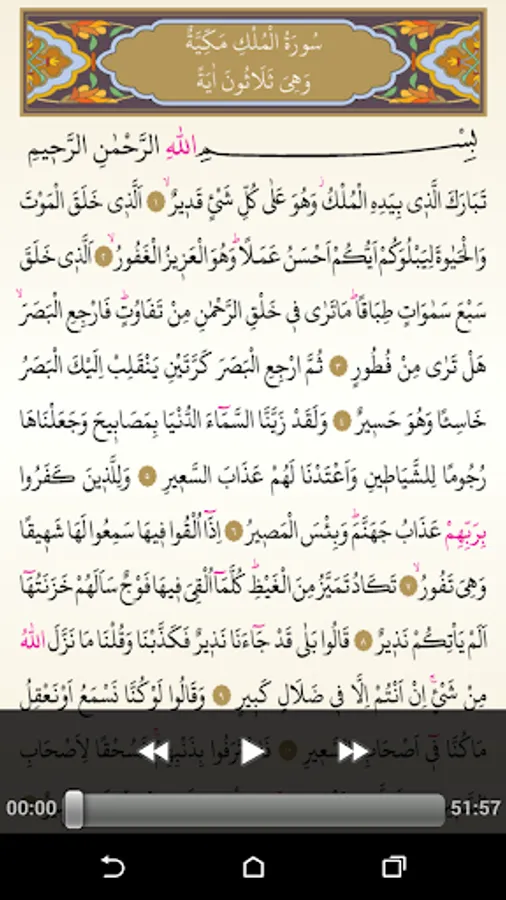 سُورَةُ الْمُلْكِ مَكِّيَّةٌ
وَهِيَ ثَلَاثُونَ اٰيَةً
بِسْمِ اللهِ الرَّحْمٰنِ الرَّحٖيمِ
تَبَارَكَ الَّذٖى بِيَدِهِ الْمُلْكُۘ وَهُوَ عَلٰى كُلِّ شَئٍ قَدٖيرٌۙ ١ اَلَّذٖى خَلَقَ الْمَوْتَ
وَالْحَيٰوةَ لِيَبْلُوَكُمْ اَيُّكُمْ اَحْسَنُ عَمَلًاؕ وَهُوَ الْعَزٖيزُ الْغَفُورُۙ ٢ اَلَّذٖى خَلَقَ
سَبْعَ سَمٰوَاتٍ طِبَاقًاؕ مَا تَرٰى فٖى خَلْقِ الرَّحْمٰنِ مِنْ تَفَاوُتٍؕ فَارْجِعِ الْبَصَرَۙ
هَلْ تَرٰى مِنْ فُطُورٍ ٣ ثُمَّ ارْجِعِ الْبَصَرَ كَرَّتَيْنِ يَنْقَلِبْ اِلَيْكَ الْبَصَرُ
خَاسِئًا وَهُوَ حَسٖيرٌ ٤ وَلَقَدْ زَيَّنَّا السَّمَٓاءَ الدُّنْيَا بِمَصَابٖيحَ وَجَعَلْنَاهَا
رُجُومًا لِلشَّيَاطٖينِ وَاَعْتَدْنَا لَهُمْ عَذَابَ السَّعٖيرِ ٥ وَلِلَّذٖينَ كَفَرُوا
بِرَبِّهِمْ عَذَابُ جَهَنَّمَؕ وَبِئْسَ الْمَصٖيرُ ٦ اِذَٓا اُلْقُوا فٖيهَا سَمِعُوا لَهَا شَهٖيقًا
وَهِىَ تَفُورُۙ ٧ تَكَادُ تَمَيَّزُ مِنَ الْغَيْظِؕ كُلَّمَٓا اُلْقِىَ فٖيهَا فَوْجٌ سَاَلَهُمْ خَزَنَتُهَٓا
اَلَمْ يَأْتِكُمْ نَذٖيرٌ ٨ قَالُوا بَلٰى قَدْ جَٓاءَنَا نَذٖيرٌ فَكَذَّبْنَا وَقُلْنَا مَا نَزَّلَ اللهُ
مِنْ شَئٍۚ اِنْ اَنْتُمْ اِلَّا فٖى ضَلَالٍ كَبٖيرٍ ٩ وَقَالُوا لَوْ كُنَّا نَسْمَعُ اَوْ نَعْقِلُ
مَا كُنَّا فٖٓى اَصْحَابِ السَّعٖيرِ ١٠ فَاعْتَرَفُوا بِذَنْبِهِمْۚ فَسُحْقًا لِاَصْحَابِ
00:00 51:57